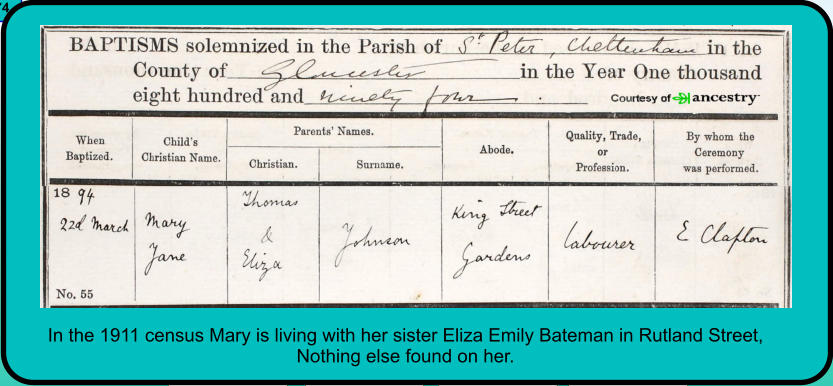 74
BAPTISMS solemnized in the Parish of St Peter, Cheltenham in the
County of Gloucester in the Year One thousand
eight hundred and ninety four.
Courtesy of ancestry
When Baptized.
Child's Christian Name.
Parents' Names.
Christian.
Surname.
Abode.
Quality, Trade, or Profession.
By whom the Ceremony was performed.
1894
22d March
No. 55
Mary
Jane
Thomas
&
Eliza
Johnson
King Street
Gardens
Labourer
E Clapton
In the 1911 census Mary is living with her sister Eliza Emily Bateman in Rutland Street,
Nothing else found on her.